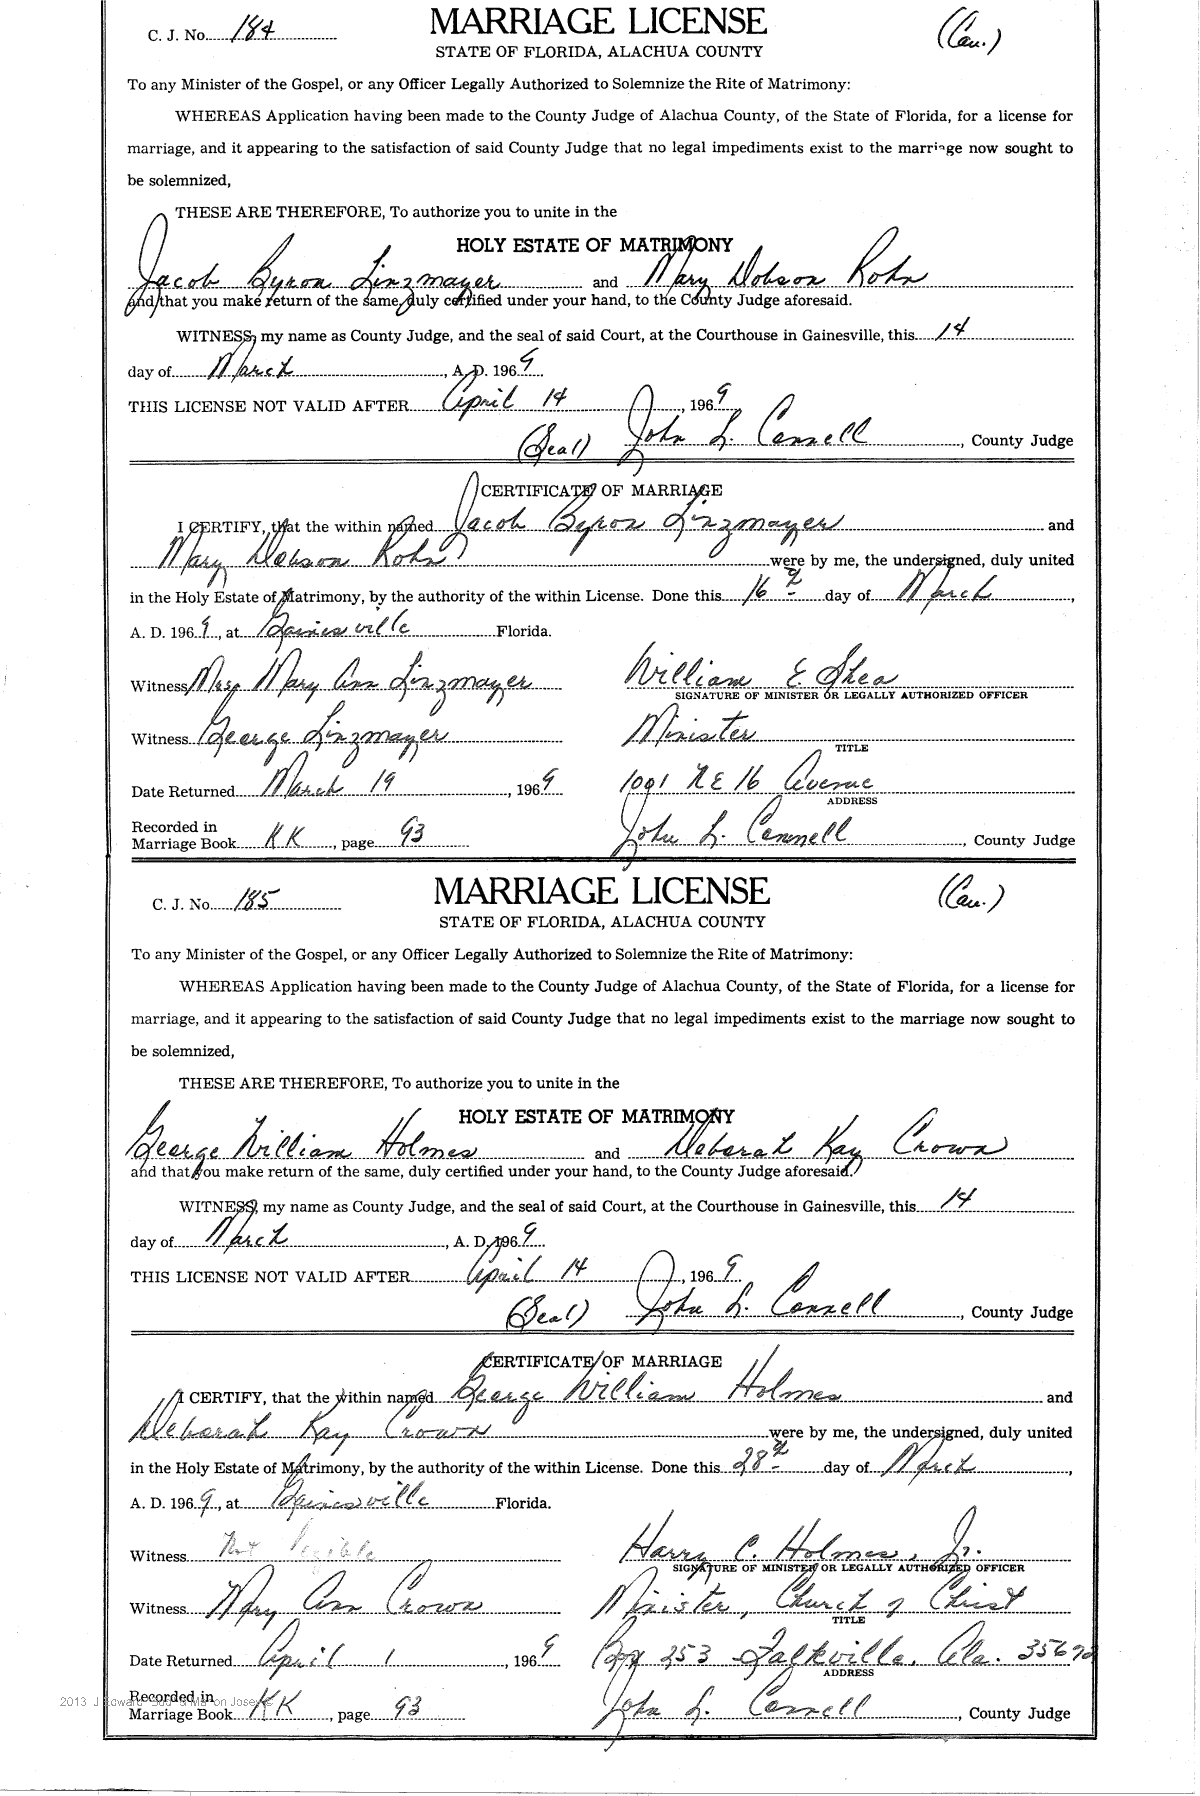 C. J. No. 184 MARRIAGE LICENSE (Cau.)
STATE OF FLORIDA, ALACHUA COUNTY
To any Minister of the Gospel, or any Officer Legally Authorized to Solemnize the Rite of Matrimony:
WHEREAS Application having been made to the County Judge of Alachua County, of the State of Florida, for a license for
marriage, and it appearing to the satisfaction of said County Judge that no legal impediments exist to the marriage now sought to
be solemnized,
THESE ARE THEREFORE, To authorize you to unite in the
HOLY ESTATE OF MATRIMONY
Jacob Byron Linzmayer and Mary Dobson Rohn
and that you make return of the same, duly certified under your hand, to the County Judge aforesaid.
WITNESS, my name as County Judge, and the seal of said Court, at the Courthouse in Gainesville, this 14
day of March, A. D. 1969.
THIS LICENSE NOT VALID AFTER April 14, 1969
(Seal) John L. Connell, County Judge
CERTIFICATE OF MARRIAGE
I CERTIFY, that the within named Jacob Byron Linzmayer and
Mary Dobson Rohn were by me, the undersigned, duly united
in the Holy Estate of Matrimony, by the authority of the within License. Done this 16th day of March,
A. D. 1969, at Gainesville Florida.
Witness Mrs. Mary Ann Linzmayer William E. Shea
SIGNATURE OF MINISTER OR LEGALLY AUTHORIZED OFFICER
Witness George Linzmayer Minister
TITLE
Date Returned March 19, 1969 1091 NE 16 Avenue
ADDRESS
Recorded in
Marriage Book KK, page 93 John L. Connell, County Judge
C. J. No. 185 MARRIAGE LICENSE (Cau.)
STATE OF FLORIDA, ALACHUA COUNTY
To any Minister of the Gospel, or any Officer Legally Authorized to Solemnize the Rite of Matrimony:
WHEREAS Application having been made to the County Judge of Alachua County, of the State of Florida, for a license for
marriage, and it appearing to the satisfaction of said County Judge that no legal impediments exist to the marriage now sought to
be solemnized,
THESE ARE THEREFORE, To authorize you to unite in the
HOLY ESTATE OF MATRIMONY
George William Holmes and Deborah Kay Crown
and that you make return of the same, duly certified under your hand, to the County Judge aforesaid.
WITNESS, my name as County Judge, and the seal of said Court, at the Courthouse in Gainesville, this 14
day of March, A. D. 1969.
THIS LICENSE NOT VALID AFTER April 14, 1969.
(Seal) John L. Connell, County Judge
CERTIFICATE OF MARRIAGE
I CERTIFY, that the within named George William Holmes and
Deborah Kay Crown were by me, the undersigned, duly united
in the Holy Estate of Matrimony, by the authority of the within License. Done this 28th day of March,
A. D. 1969, at Gainesville Florida.
Witness Not Legible Harry C. Holmes, Jr.
SIGNATURE OF MINISTER OR LEGALLY AUTHORIZED OFFICER
Witness Mary Ann Crown Minister, Church of Christ
TITLE
Date Returned April 1, 1969 Box 253 Falkville, Ala. 35622
ADDRESS
Recorded in
Marriage Book KK, page 93 John L. Connell, County Judge